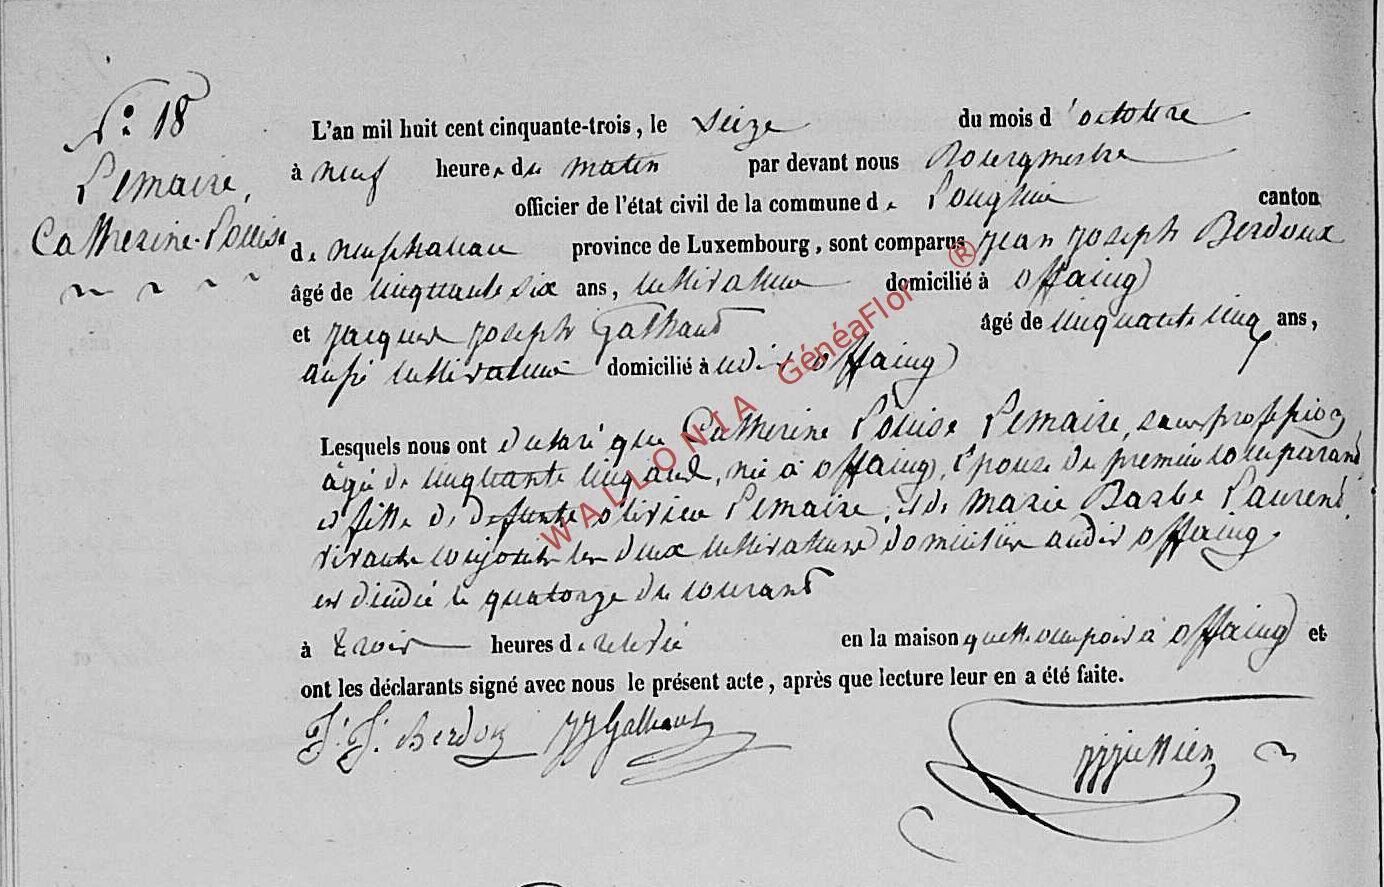 N.° 18
Lemaire,
Catherine-Louise
L'an mil huit cent cinquante-trois, le seize du mois d'octobre
à neuf heures du matin par devant nous Bourgmestre
officier de l'état civil de la commune de Longlier canton
de neufchateau province de Luxembourg, sont comparus jean joseph Berdoux
âgé de cinquante six ans, cultivateur domicilié à offaing
et jacques joseph Galhaut âgé de cinquante cinq ans,
aussi cultivateur domicilié à udit offaing
Lesquels nous ont déclaré que Catherine Louise Lemaire, sans profession
âgée de cinquante cinq ans, née à offaing, épouse du premier comparant
et fille de defunte olivier Lemaire, et de marie Barbe Laurent,
vivante conjoints les deux cultivateurs domiciliés audit offaing.
est dicédée le quatorze du courant
à trois heures de relevée en la maison qu'elle occupoit à offaing et
ont les déclarants signé avec nous le présent acte, après que lecture leur en a été faite.
J. J. Berdoux JJ Galhaut
WALLONIA GénéaFlor ®